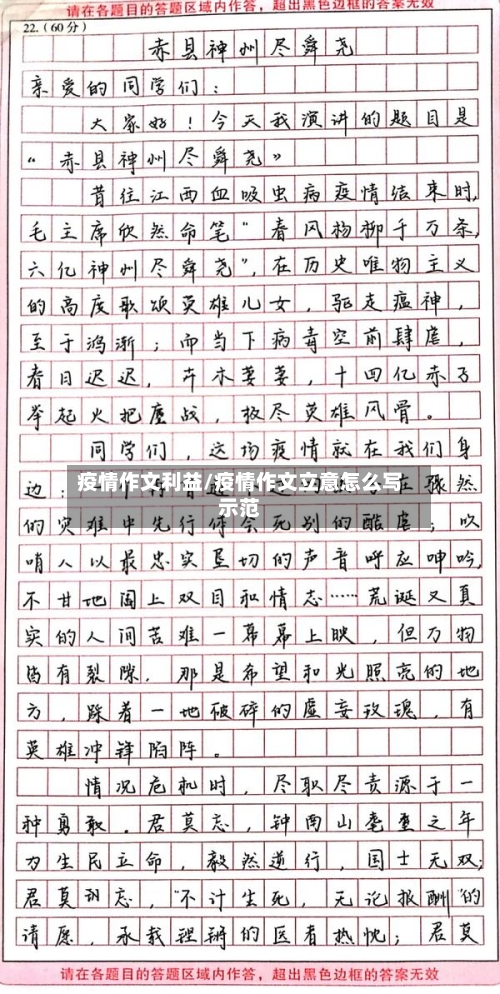 请在各题目的答题区域内作答，超出黑色边框的答案无效
22.(60分)
赤县神州尽舜尧
亲爱的同学们：
大家好！今天我演讲的题目是
“赤县神州尽舜尧”
昔往江西血吸虫病疫情结束时，
毛主席欣然命笔“春风杨柳千万条，
六亿神州尽舜尧”，在历史唯物主义
的高度歌颂英雄儿女，驱走瘟神，
至于鸿渐；而当下病毒空前肆虐，
春日迟迟，卉木萋萋，十四亿赤子
举起火把鏖战，极尽英雄风骨。
同学们，这场疫情就在我们身
边：
疫情作文利益/疫情作文立意怎么写
示范
在骤然
的灾难中先行体会死别的酷虐；吹
哨人以最忠实恳切的声音呼应呻吟，
不甘地阖上双目和情志……荒诞又真
实的人间苦难一幕幕上映，但万物
皆有裂隙，那是希望和光照亮的地
方，踩着一地破碎的虚妄玫瑰，有
英雄冲锋陷阵。
情况危机时，尽职尽责源于一
种勇敢。君莫忘，钟南山耄耋之年
为生民立命，毅然逆行，国士无双；
君莫忘，“不计生死，无论报酬”的
请愿，承载铿锵的医者热忱；君莫
请在各题目的答题区域内作答，超出黑色边框的答案无效